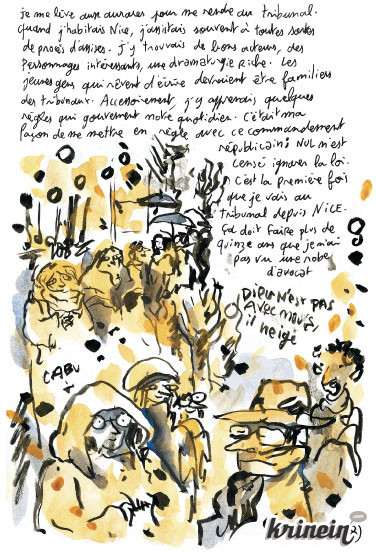 je me lève aux aurores pour me rendre au tribunal.
Quand j'habitais Nice, j'assistais souvent à toutes sortes
de procès d'assises. j'y trouvais de bons acteurs, des
personnages intéressants, une dramaturgie riche. Les
jeunes gens qui rêvent d'écrire devraient être familiers
des tribunaux. Accessoirement, j'y apprenais quelques
règles qui gouvernent notre quotidien. C'était ma
façon de me mettre en règle avec ce commandement
républicain: NUL n'est
censé ignorer la loi.
C'est la première fois
que je vais au
tribunal depuis NICE.
ça doit faire plus de
quinze ans que je n'ai
pas vu une robe
d'avocat
DIEU N'EST PAS
AVEC nous,
il neige
CABU
krinein
2)